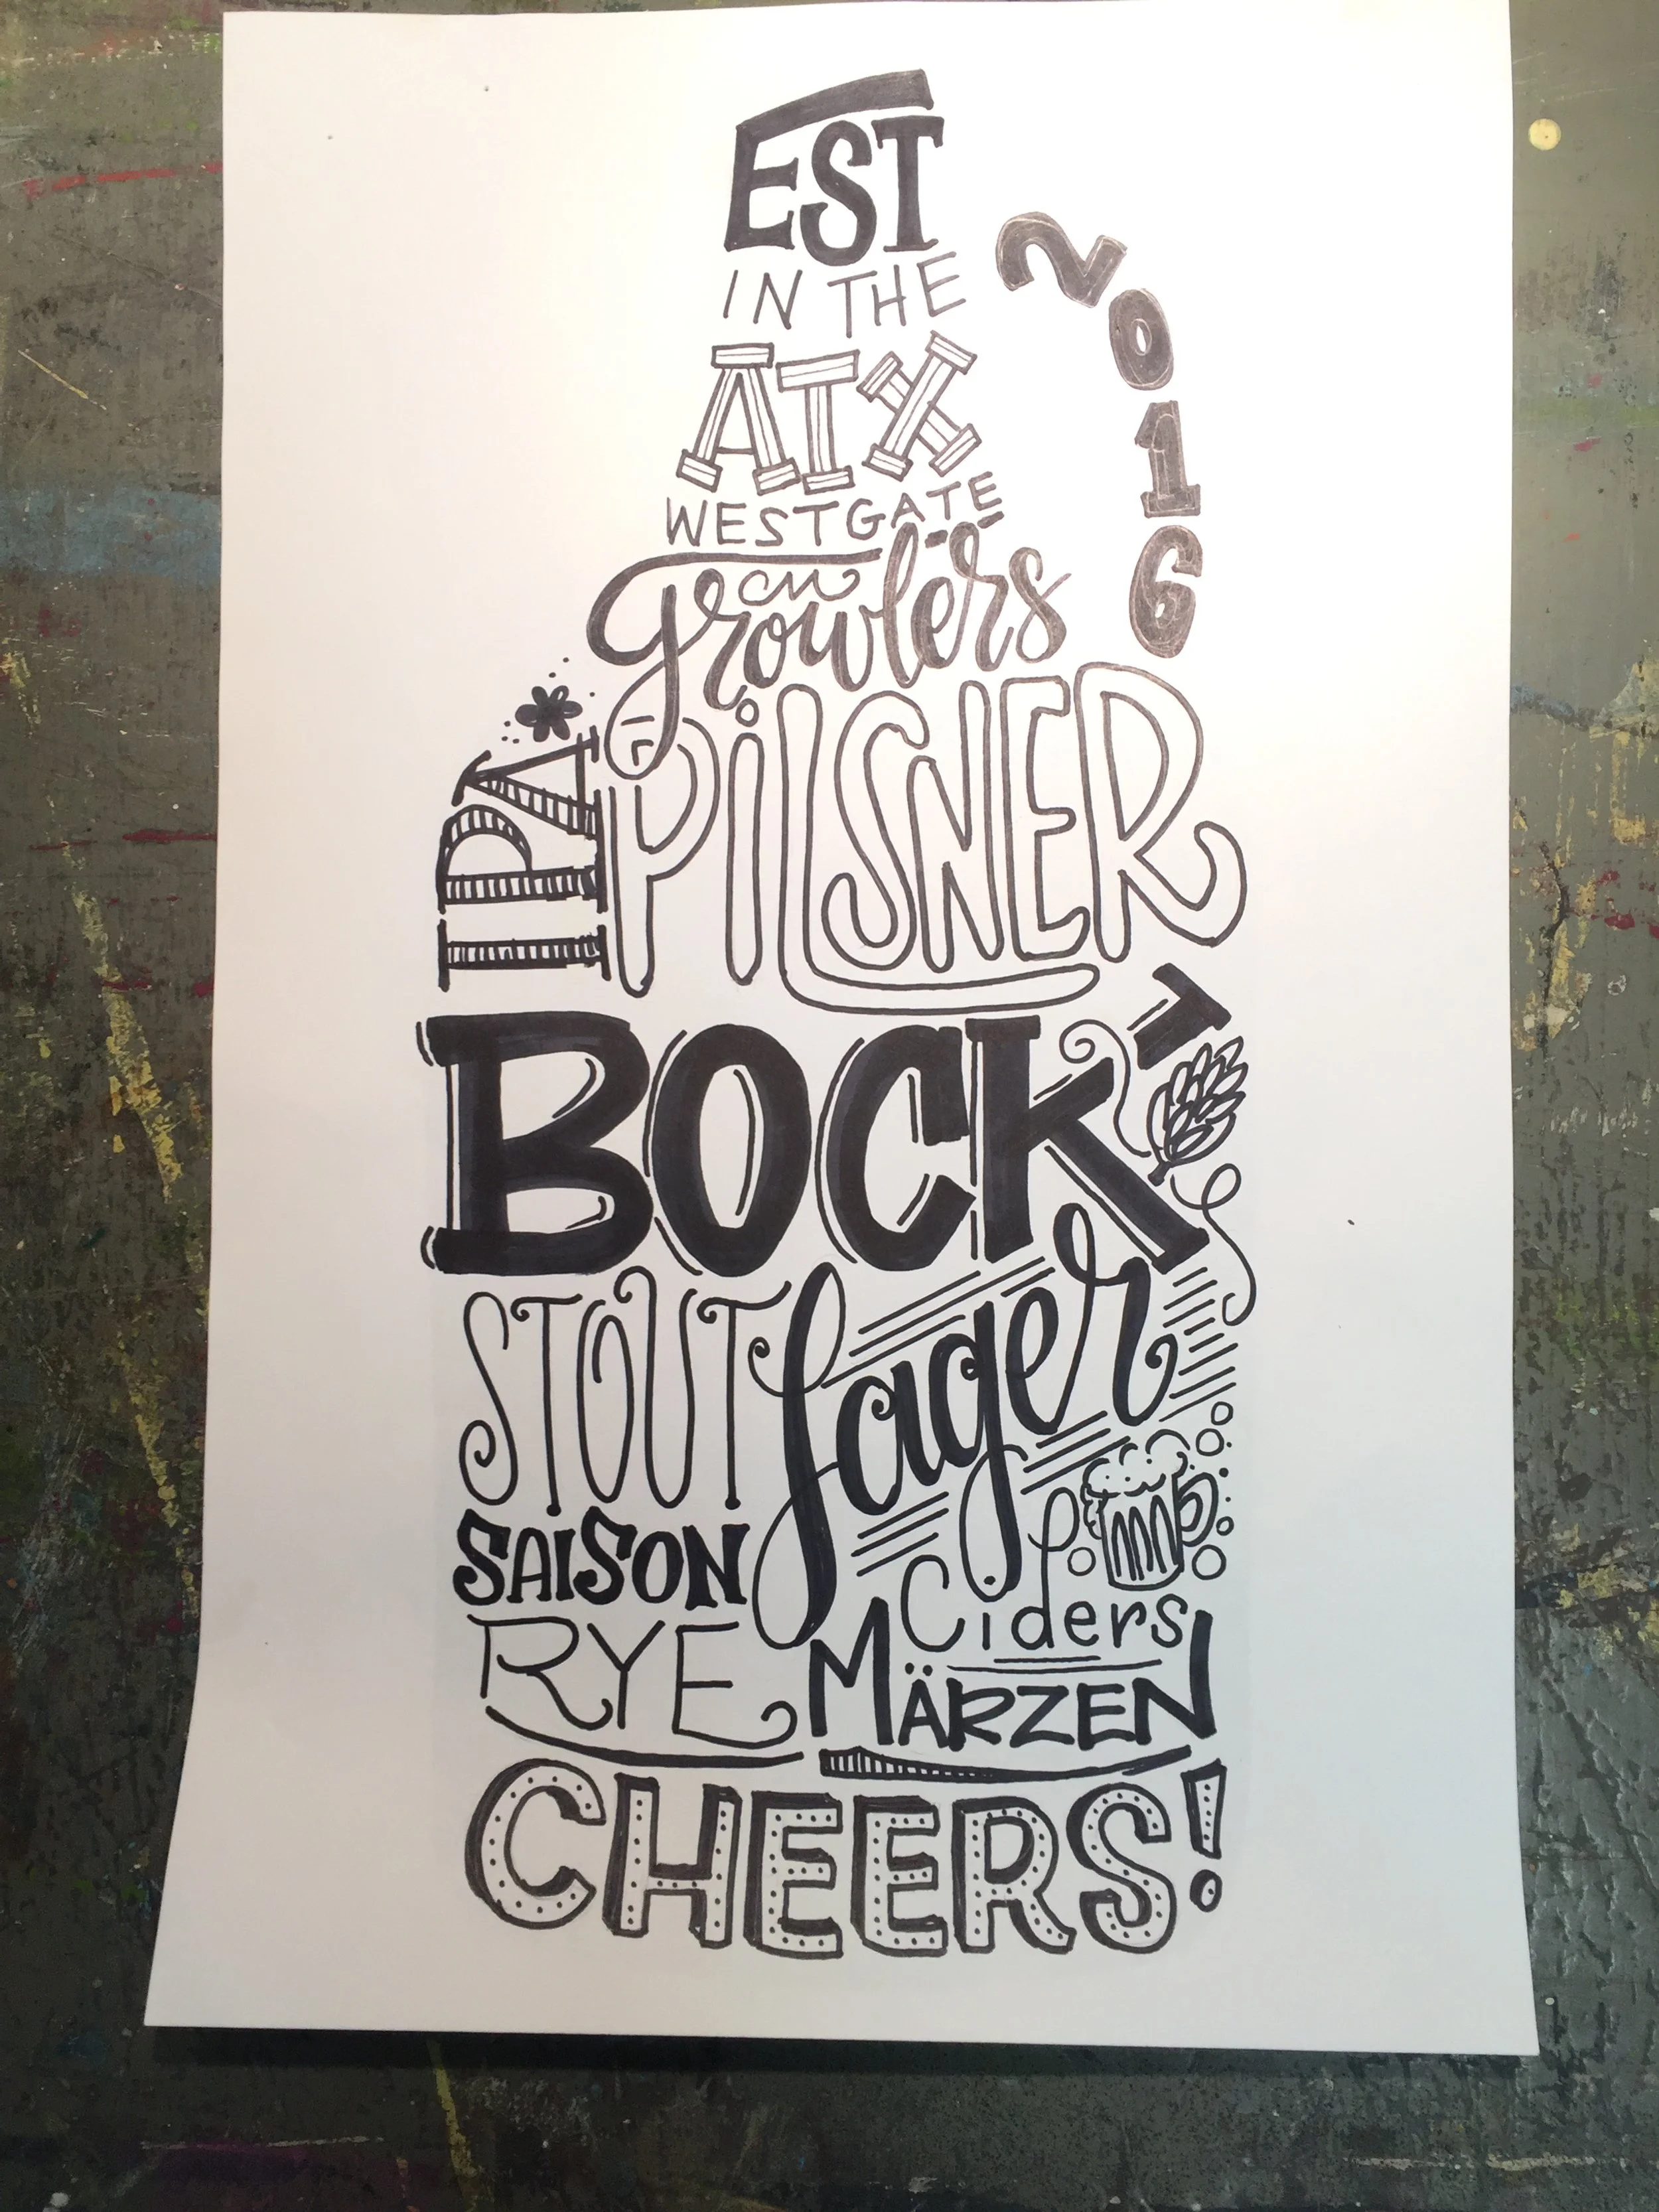 EST
IN THE
ATX
WESTGATE
2016
growlers
IPA
PILSNER
BOCK
STOUT
lager
SAISON
Ciders
RYE
MÄRZEN
CHEERS!